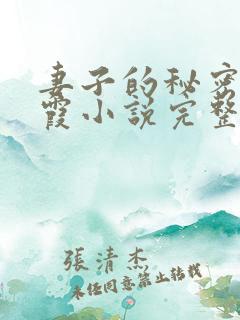 妻子的秘密
霞小说完整
張清杰
未经同意禁止转载